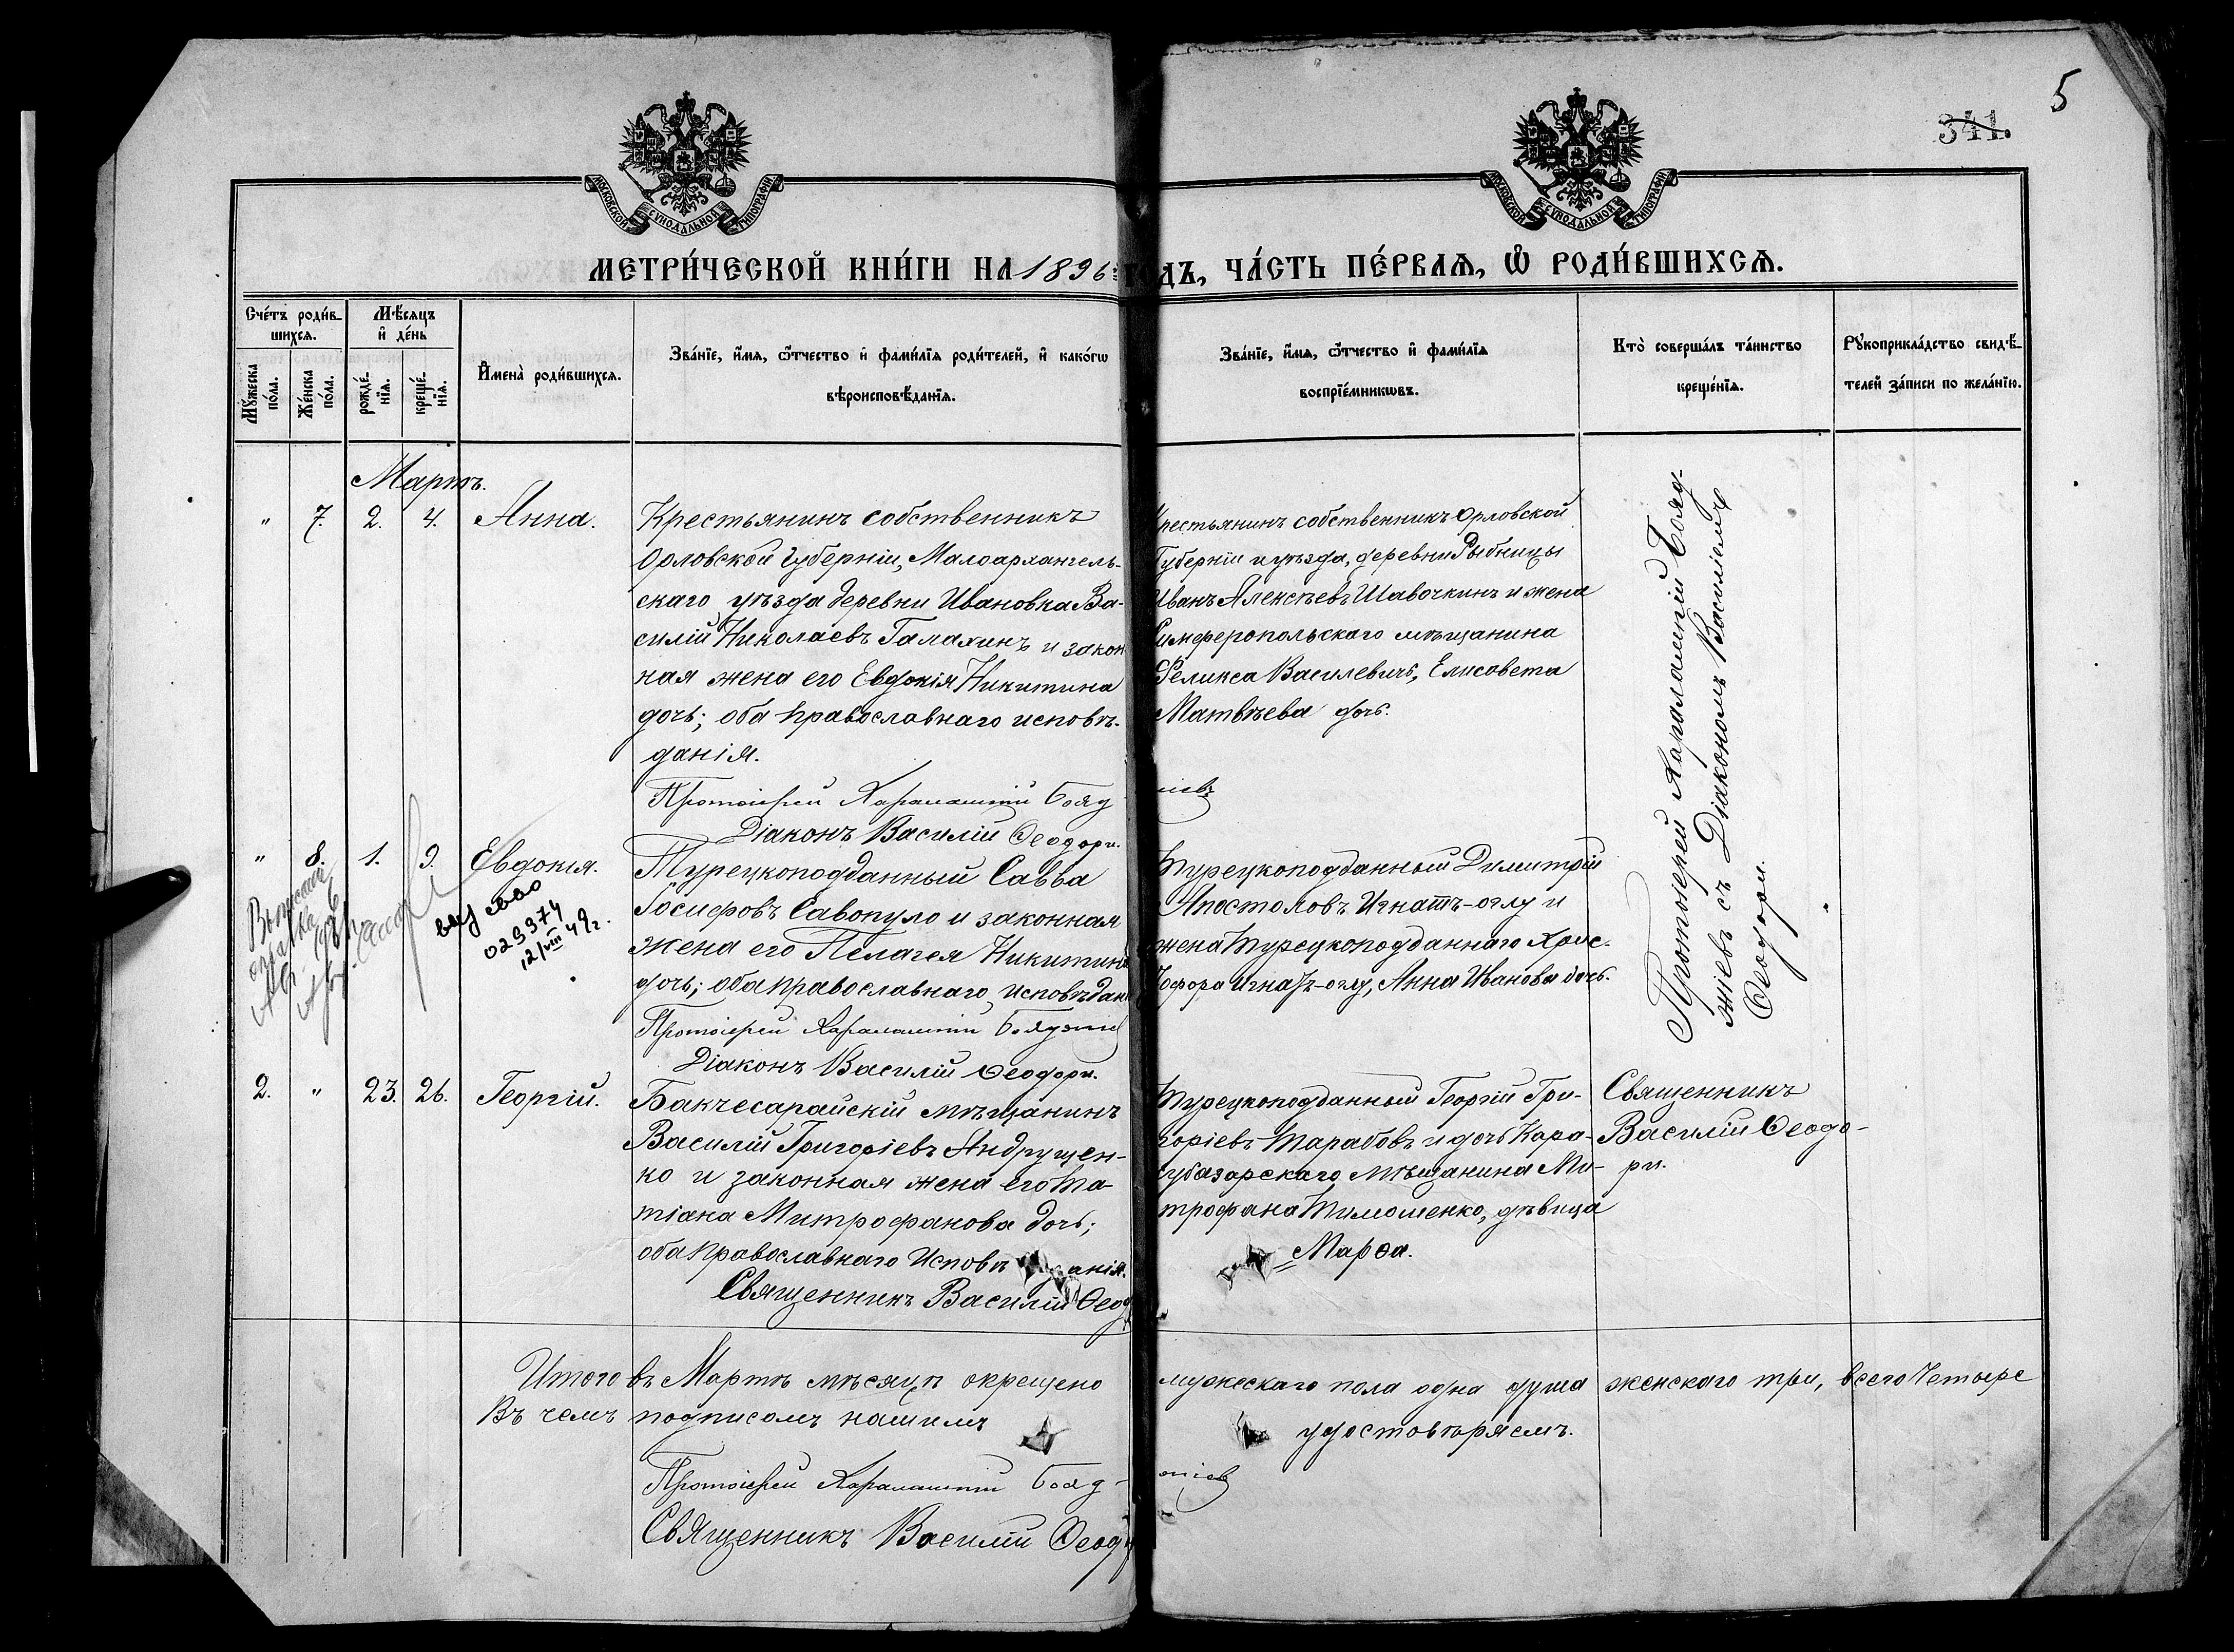 5
341.
МОСКОВСКОЙ СѴНОДАЛЬНОЙ ТИПОГРАФІИ
МОСКОВСКОЙ СѴНОДАЛЬНОЙ ТИПОГРАФІИ
МЕТРИ́ЧЕСКОЙ КНИ́ГИ НА 1896 ГОДЪ, ЧА́СТЬ ПЕ́РВАѦ, Ѽ РОДИ́ВШИХСѦ.
Сче́тъ роди́в-
шихсѧ.
Мѹ́жеска по́ла.
Же́нска по́ла.
Мѣ́сѧцъ
и҆ де́нь
рожде́-
нїѧ.
креще́-
нїѧ.
И҆мена̀ роди́вшихсѧ.
Зва́нїе, и҆́мѧ, ѻ҆́тчество и҆ фами́лїѧ роди́телей, и҆ како́гѡ
вѣроисповѣ́данїѧ.
Зва́нїе, и҆́мѧ, ѻ҆́тчество и҆ фами́лїѧ
воспрїе́мникѡвъ.
Кто̀ соверша́лъ та́инство
креще́нїѧ.
Рꙋкоприкла́дство свидѣ́-
телей за́писи по жела́нїю.
Мартъ.
" 7. 2. 4. Анна.
Крестьянинъ собственникъ
Орловской губерніи, Малоархангель-
скаго уѣзда деревни Ивановка Ва-
силій Николаевъ Галахинъ и закон
ная жена его Евдокія Никитина
дочь; оба православнаго исповѣ-
данія.
Протоіерей Харалампій Бояд
Діаконъ Василій Ѳеодори.
рестьянинъ собственникъ Орловской
Губерніи и уѣзда, деревни Рыбницы
Иванъ Алексѣевъ Шавочкинъ и жена
Симферопольскаго мѣщанина
Феликса Василевичъ, Елисовета
Матвѣева дочь.
жіевъ
Протоіерей Харалампій Бояд-
жіевъ съ Діакономъ Василіемъ
Ѳеодори.
" 8. 1. 9. Евдокія.
029974
12/VIII 49г.
Турецкоподданный Савва
Іосифовъ Савопуло и законная
жена его Пелагея Никитина
дочь; оба православнаго исповѣдан
Протоіерей Харалампій Бояджіе
Діаконъ Василій Ѳеодори.
Турецкоподданный Димитрій
Апостоловъ Игнатъ-оглу и
жена турецкоподданнаго Хрис-
тофора Игнатъ-оглу, Анна Иванова дочь.
2. " 23. 26. Георгій.
Бакчесарайскій мѣщанинъ
Василій Григоріевъ Андрущен-
ко и законная жена его Та-
тіана Митрофанова дочь;
оба православнаго исповѣданія.
Священникъ Василій Ѳеод
Турецкоподданный Георгій Гри-
горіевъ Тарабовъ и дочь Кара-
субазарскаго мѣщанина Ми-
трофана Тимошенко, дѣвица
Марѳа.
Священникъ
Василій Ѳеодо-
ри.
Итого въ Мартѣ мѣсяцѣ окрещено мужескаго пола одна душа женскаго три, всего четыре
Въ чемъ подписомъ нашимъ удостовѣряемъ.
Протоіерей Харалампій Бояд-жіевъ
Священникъ Василій Ѳеод